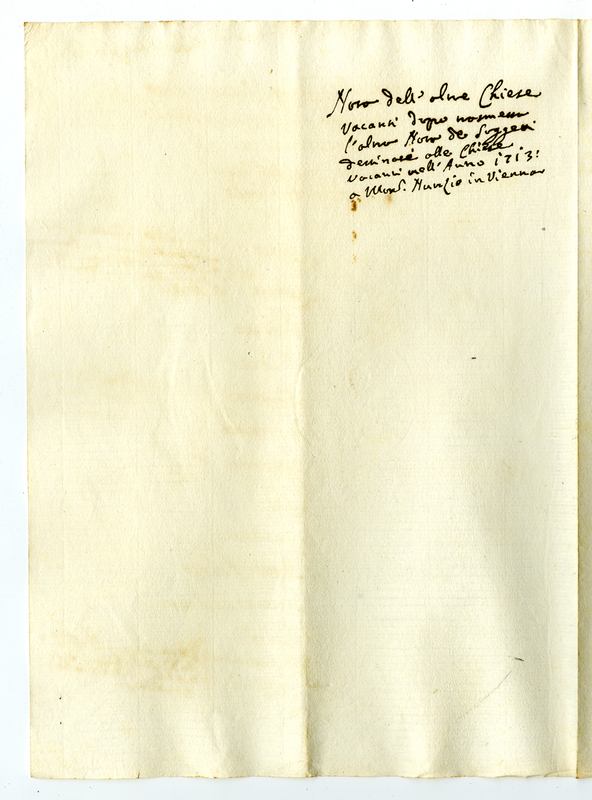 Nota dell'altre Chiese
vacanti dopo trasmessa
l'altra Nota de Soggetti
destinati alle Chiese
vacanti nell'Anno 1713:
a Mons. Nunzio in Vienna